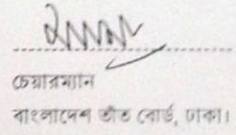 চেয়ারম্যান
বাংলাদেশ তাঁত বোর্ড, ঢাকা।